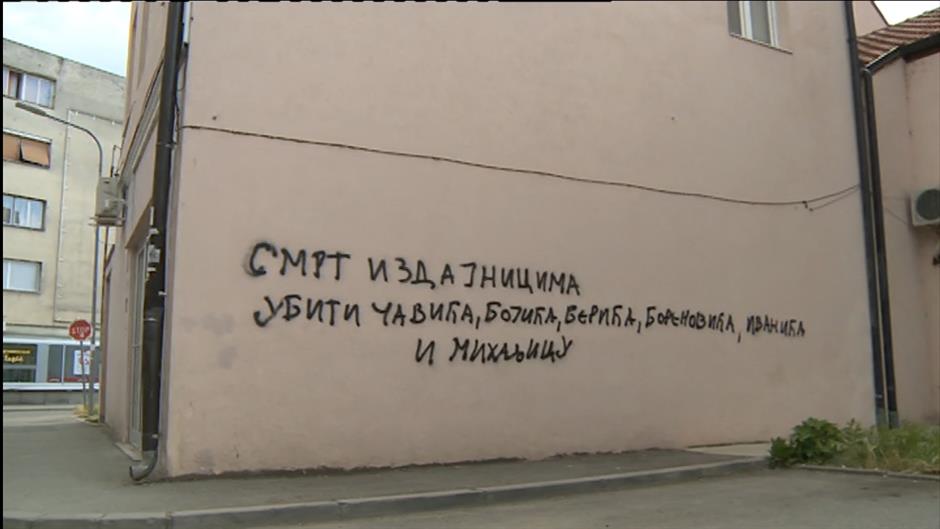 СМРТ ИЗДАЈНИЦИМА
УБИТИ ЧАВИЋА, БОЈИЋА, БЕРИЋА, БОРЕНОВИЋА, ИВАНИЋА
И МИХАЉИЦУ
STOP